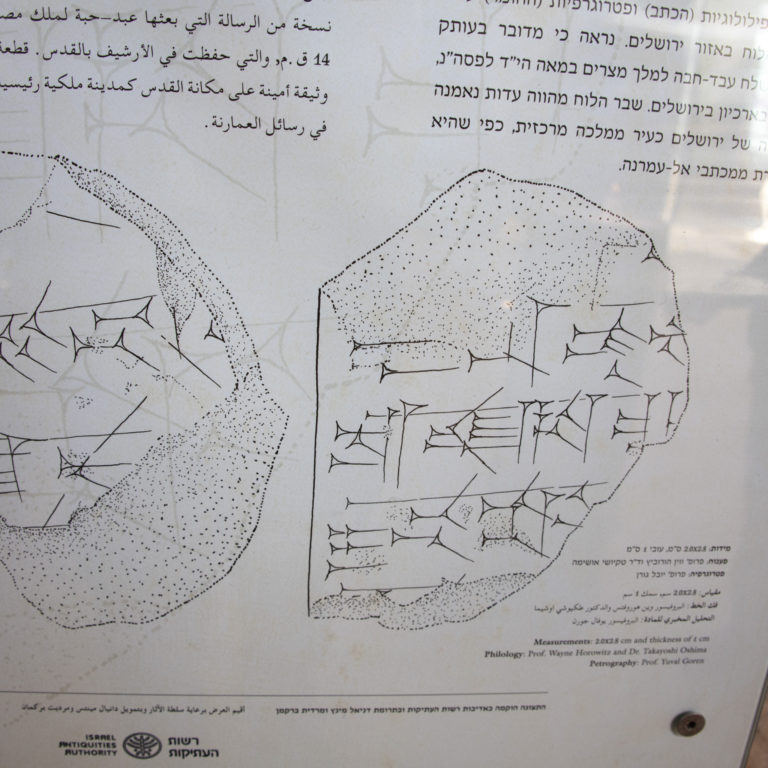 نسخة من الرسالة التي بعثها عبد-حبة لملك مصر
14 ق.م، والتي حفظت في الأرشيف بالقدس. قطعة
وثيقة أمينة على مكانة القدس كمدينة ملكية رئيسية
في رسائل العمارنة.
פילולוגיות (הכתב) ופטרוגרפיות (החומר)
לוח באזור ירושלים. נראה כי מדובר בעותק
שלח עבד-חבה למלך מצרים במאה הי"ד לפסה"נ,
בארכיון בירושלים. שבר הלוח מהווה עדות נאמנה
של ירושלים כעיר ממלכה מרכזית, כפי שהיא
ממכתבי אל-עמרנה.
מידות: 2.0X2.8 ס"מ, עובי 1 ס"מ
פענוח: פרופ' ווין הורוביץ וד"ר טקיושי אושימה
פטרוגרפיה: פרופ' יובל גורן
مقياس: 2.0X2.8 سم، سمك 1 سم
فك الخط: البروفيسور وين هوروفتس والدكتور طكيوشي اوشيما
التحليل المخبري للمادة: البروفيسور يوفال جورن
Measurements: 2.0x2.8 cm and thickness of 1 cm
Philology: Prof. Wayne Horowitz and Dr. Takayoshi Oshima
Petrography: Prof. Yuval Goren
התצוגה הוקמה באדיבות רשות העתיקות ובתרומת דניאל מינץ ומרדית ברקמן
أقيم العرض برعاية سلطة الآثار وبتمويل دانيال مينتس ومرديت بركمان
ISRAEL
ANTIQUITIES
AUTHORITY
רשות
העתיקות